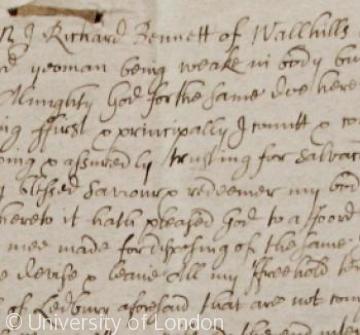 I Richard Bennett of Wallhills
yeoman being weake in body bu
Almighty God for the same doe here
ing ffirst & principally I comitt & co
ping & assuredly trusting for salvac
blessed Saviour & redeemer my bod
hereto it hath pleased God to afoord
mee made for disposing of the same
devise & leave All my ffreehold
of Ledbury aforesaid that are not com
© University of London